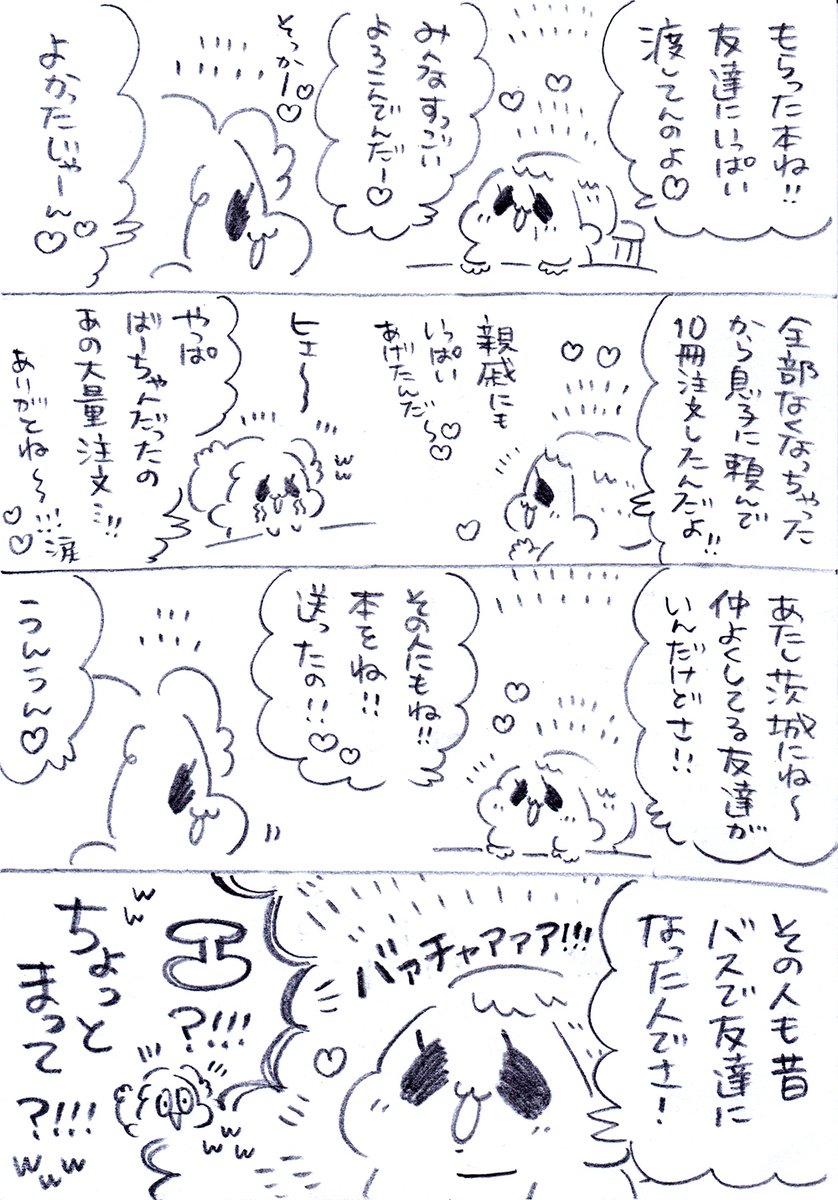 もらった本ね!!
友達にいっぱい
渡してんのよ♡
みんなすっごい
よろこんでんだー♡
そっかー♡
よかったじゃーん♡
全部なくなっちゃった
から息子に頼んで
10冊注文したんだよ!!
親戚にも
いっぱい
あげたんだ〜♡
ヒェ〜〜
ww
やっぱ
ばーちゃんだったの
あの大量注文…!!
ありがとね〜〜!!!涙
♡♡
あたし茨城にね〜
仲よくしてる友達が
いんだけどさ!!
その人にもね!!
本をね!!
送ったの!!♡♡
うんうん♡
その人も昔
バスで友達に
なった人でさ!
バァチャアァァ!!!
エ
?!!!
ww
ちょっと
まって
?!!!
www